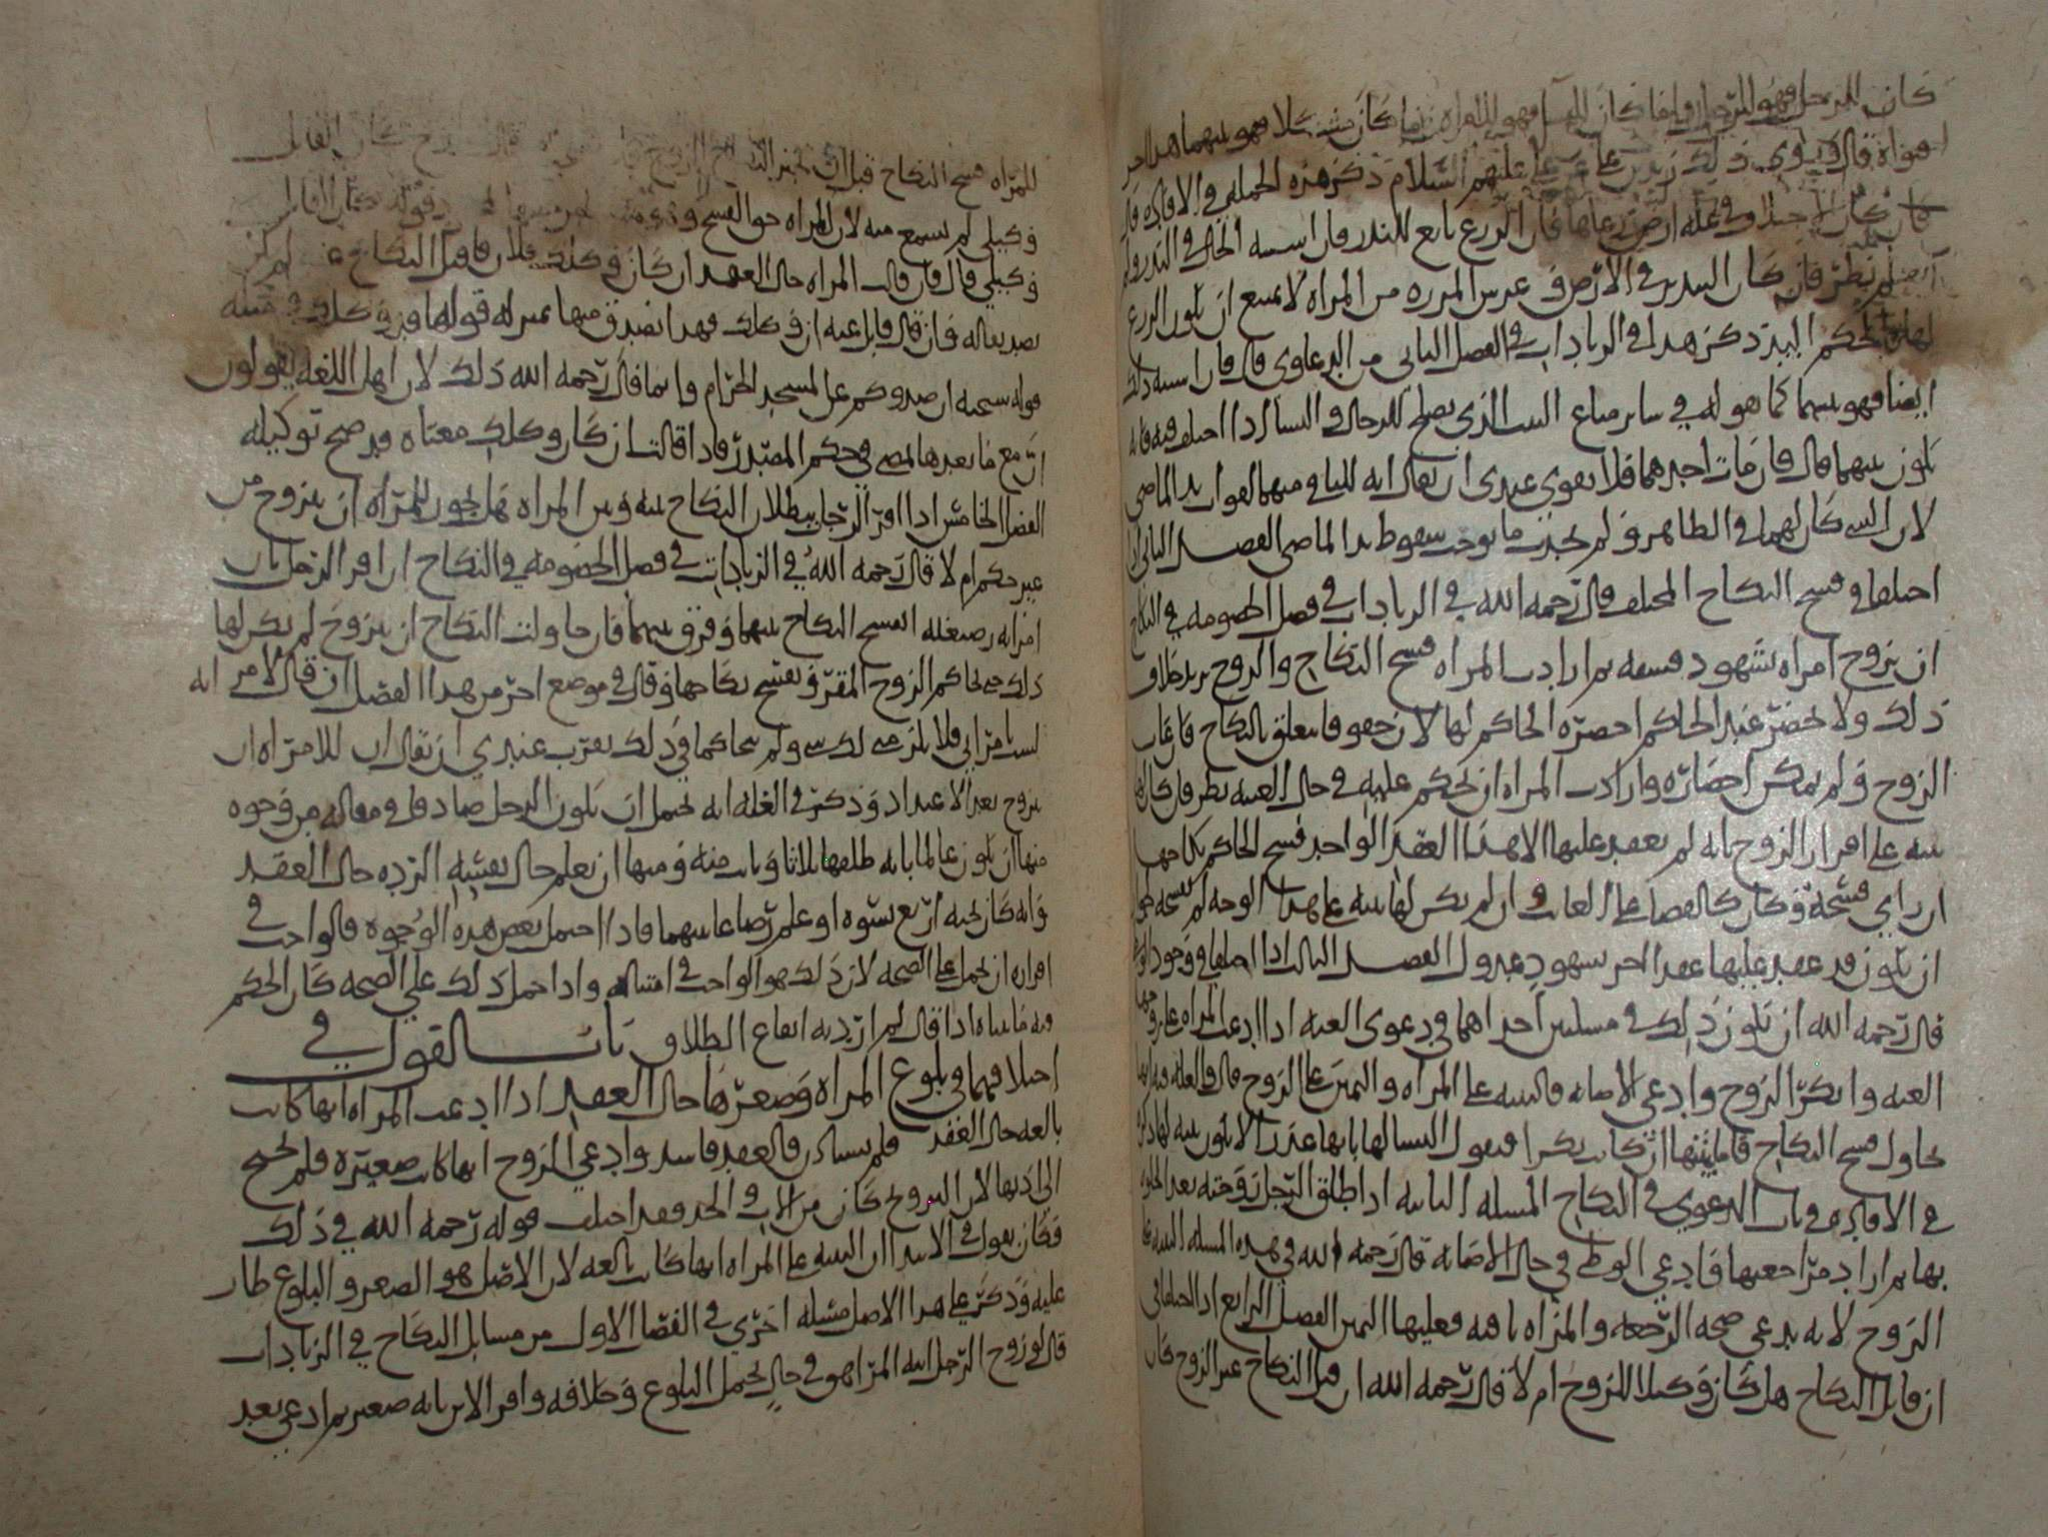 كان للرجل فهو للرجل وما كان للنسا فهو للمراه وما كان مشكلا فهو بينهما هذا اخر
قال وروي ذلك زيد بن علي عن علي عليهم السلام ذكر هذه الجمله في الافاده
كان في غله ارض زرعاها فان الزرع تابع للبذر فان اشتبه الحال في البذر ولم
لم ينظر فان كان البذر في الارض في المراه لا يمنع ان يكون الزرع
لهما لحكم اليد ذكر هذا في الزيادات في الفصل الثاني من الدعاوي قال فان اشتبه ذلك
ايضا فهو بينهما كما نقوله في ساير متاع البيت الذي يصلح للرجال والنسا اذا اختلف فيه فانه
يكون بينهما قال فان مات احدهما فلا يقوى عندي ان يقال انه للباقي منهما لفوات يد الماضي
لان اليد كان لهما في الظاهر ولم يحدث ما يوجب سقوط يد الماضي الفصل الثاني اذا
اختلفا في فسخ النكاح المختلف قال رحمه الله في الزيادات في فصل الخصومه في النكاح
ان تزوج امراه بشهود فسقه ثم ارادت المراه فسخ النكاح والزوج يريد خلاف
ذلك ولا يحضر عند الحاكم احضره الحاكم لها لان حقوقا تتعلق بالنكاح فان غاب
الزوج ولم يمكن احضاره وارادت المراه ان يحكم عليه في حال الغيبه نظر فان كان لها
بينه على اقرار الزوج بانه لم يعقد عليها الا هذا العقد الواحد فسخ الحاكم نكاحها
ان راي فسخه وكان كالقضا على الغايب وان لم يكن لها بينه على هذا الوجه لم يفسخه
ان يكون قد عقد عليها عقدا اخر بشهود عدول الفصل الثالث اذا اختلفا في وجود
قال رحمه الله ان يكون ذلك في مسلتين احداهما في دعوى العنه اذا ادعت المراه على زوجها
العنه وانكر الزوج وادعى الاصابه فالبينه على المراه واليمين على الزوج قال والعله فيه انها
تحاول فسخ النكاح فاما ان كانت بكرا فيقول النسا لها بانها عذرا الا يكون بينه لها ذكره
في الافاده في باب الدعوى في النكاح المسله الثانيه اذا طلق الرجل زوجته بعد الخلوه
بها ثم اراد مراجعتها فادعى الوطي في حال الاصابه قال رحمه الله في هذه المسله البينه على
الزوج لانه يدعي صحه الرجعه والمراه نافيه فعليها اليمين الفصل الرابع اذا اختلفا في
ان قابل النكاح هل كان وكيلا للزوج ام لا قال رحمه الله ان قبل النكاح غير الزوج كان
للمراه فسخ النكاح قبل ان يجيز النكاح الزوج
وكيلي لم يسمع منه لان للمراه حق الفسخ
وكيلي قال فان قالت المراه حال العقد ان كان وكلك فلان فاقبل النكاح
بصدر مقاله فان قال قابل عنه ان وكلك فهذا تصديق منها بمنزله قولها قد وكلك
قوله سبحنه ان صدوكم عن المسجد الحرام وانما قال رحمه الله ذلك لان اهل اللغه يقولون
ان مع ما بعدها لمضي في حكم المصدر فاذا قالت ان كان وكلك معناه قد صح توكيله
الفصل الخامس اذا اقر الرجل ببطلان النكاح بينه وبين المراه هل يجوز للمراه ان تتزوج من
غير حكم ام لا قال رحمه الله في الزيادات في فصل الخصومه في النكاح ان اقر الرجل بان
امراته رضيعته انفسخ النكاح بينهما وفرق بينهما فان حاولت النكاح ان تتزوج لم يكن لها
ذلك حتى تحاكم الزوج المقر ويفسخ نكاحها وقال في موضع اخر من هذا الفصل ان قال لامراته
لست بامراتي فلا يلزمني لك شي ولم يتحاكما في ذلك يقرب عندي ان يقال ان للامراه ان
تزوج بعد الاعتداد وذكر في العله انه يحتمل ان يكون الرجل صادقا في مقاله من وجوه
منها ان يكون عالما بانه طلقها ثلاثا وبانت منه ومنها ان يعلم حال نفسه الرده حال العقد
وانه كان تحته اربع نسوه او علم رضاعا بينهما فاذا احتمل بعض هذه الوجوه فالواجب في
اقراره ان يحمل على الصحه لان ذلك هو الواجب في امثاله واذا حمل ذلك على الصحه كان الحكم
فيه ما بيناه اذا قال لم ارد به ايقاع الطلاق باب القول في
اختلافهما في بلوغ المراه وصغرها حال العقد اذا ادعت المراه انها كانت
بالغه حال العقد فلم تستاذن فالعقد فاسد وادعى الزوج انها كانت صغيره فلم يحتج
الى اذنها لان التزويج كان من الاب والجد فقد اختلف قوله رحمه الله في ذلك
فكان يقول في الابتدا ان البينه على المراه انها كانت بالغه لان الاصل هو الصغر والبلوغ طار
عليه وذكر على هذا الاصل مسله اخرى في الفصل الاول من مسايل النكاح في الزيادات
قال لو زوج الرجل ابنه المراهق في حال يحتمل البلوغ وخلافه واقر الابن بانه صغير ثم ادعى بعد